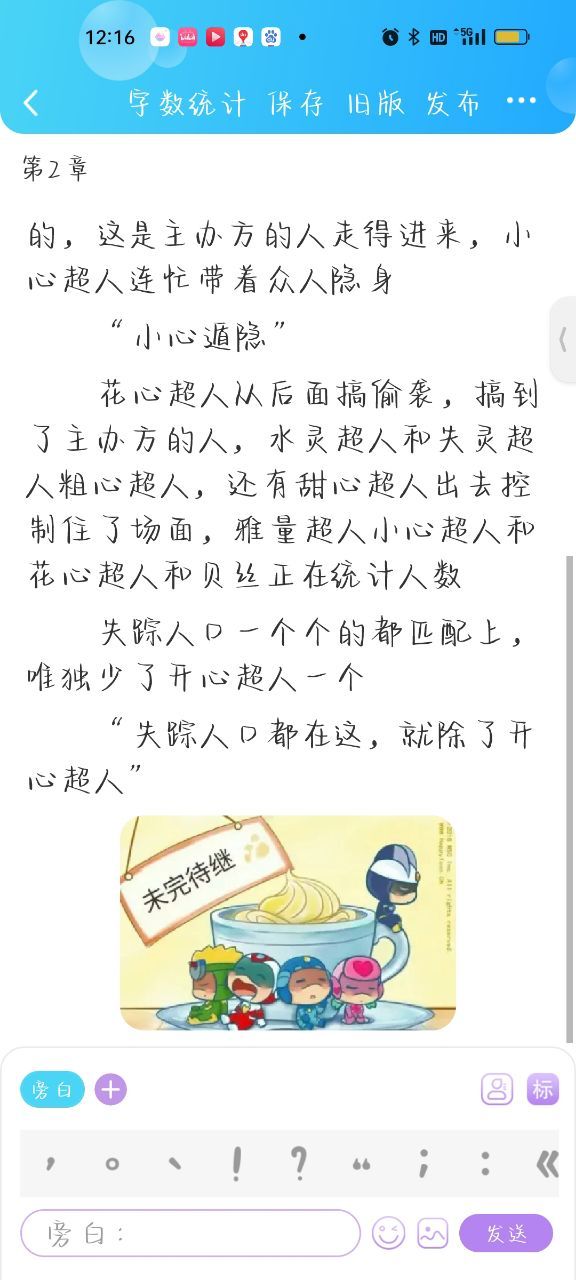 12:16
HD 5G
字数统计 保存 旧版 发布
第2章
的，这是主办方的人走得进来，小
心超人连忙带着众人隐身
“小心遁隐”
花心超人从后面搞偷袭，搞到
了主办方的人，水灵超人和失灵超
人粗心超人，还有甜心超人出去控
制住了场面，雅量超人小心超人和
花心超人和贝丝正在统计人数
失踪人口一个个的都匹配上，
唯独少了开心超人一个
“失踪人口都在这，就除了开
心超人”
未完待继
旁白
标
，。、！？“；：《
旁白：
发送